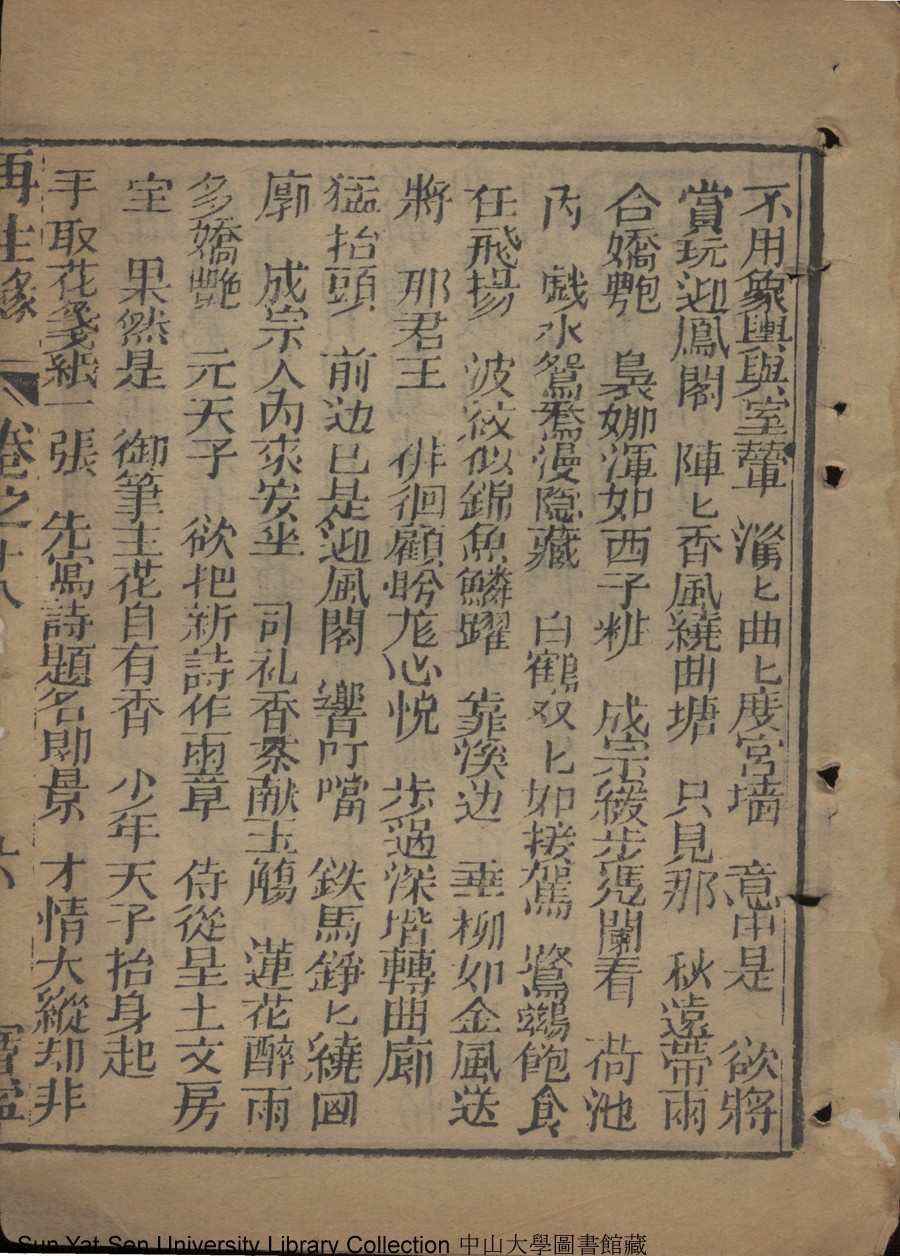 不用象輿與室輦　澫匕曲匕度宮墻　意中是　欲將
賞玩迎鳳閣　陣匕香風繞曲塘　只見那　秋遠帶雨
合嬌艷　裊娜渾如西子粧　成宗緩步凴闌看　荷池
内　戯水鴛鴦漫隐藏　白鶴双匕如接駕　鷺鷀飽食
任飛揚　波紋似錦魚鱗躍　靠溪边　垂柳如金風送
將　那君王　徘徊顧盼龙心悦　步過深堦轉曲廊
猛抬頭　前边已是迎風閣　響叮噹　鉄馬錚匕繞囬
廓　成宗人内來安坐　司礼香茶献玉觴　蓮花醉雨
多嬌艷　元天子　欲把新詩作兩章　侍從呈土文房
宝　果然是　御筆主花自有香　少年天子抬身起
手取花箋紙一張　先寫詩題名即景　才情大縱却非
再生緣　卷之十八　六　寶寧
Sun Yat-Sen University Library Collection 中山大學圖書館藏